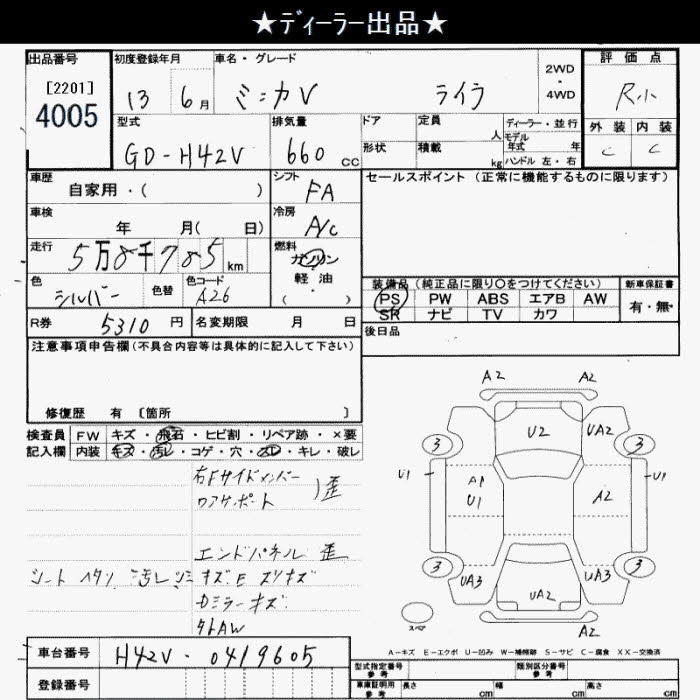 ★ディーラー出品★
出品番号 初度登録年月 車名・グレード 2WD ・ 4WD 評価点
[2201] 4005 13 6月 ミニカV ライラ R小
型式 排気量 ドア 定員 人 ディーラー・並行 外装 内装
GD-H42V 660 cc 形状 積載 kg モデル年式 年 ハンドル 左・右 C C
車歴 自家用・( ) シフト FA セールスポイント (正常に機能するものに限ります)
車検 年 月( 日) 冷房 A/C
走行 5万8千785 km 燃料 ガソリン 軽油 ( )
色 シルバー 色替 色コード A26
装備品 (純正品に限り○をつけてください) 新車保証書
PS PW ABS エアB AW 有・無
SR ナビ TV カワ
R券 5310円 名変期限 月 日 後日品
注意事項申告欄 (不具合内容等は具体的に記入して下さい)
修復歴 有 [箇所 ]
検査員 FW キズ・飛石・ヒビ割・リペア跡・×要
記入欄 内装 キズ・汚レ・コゲ・穴・スレ・キレ・破レ
右Fサイドメンバー
コアサポート )歪
エンドパネル 歪
シート ヘタリ 汚レ シミ キズ E スリキズ
Dミラーキズ
社外AW
A2 A2
3 U2 UA2 3
U1 A1 U1 A2 U1
3 UA3 UA2 UA3 3
スペア A2
A-キズ E-エクボ U-凹み W-補修跡 S-サビ C-腐食 XX-交換済
車台番号 H42V-0419605
型式指定番号 参考 類別区分番号 参考
登録番号
車庫証明用 参考 長さ cm 幅 cm 高さ cm